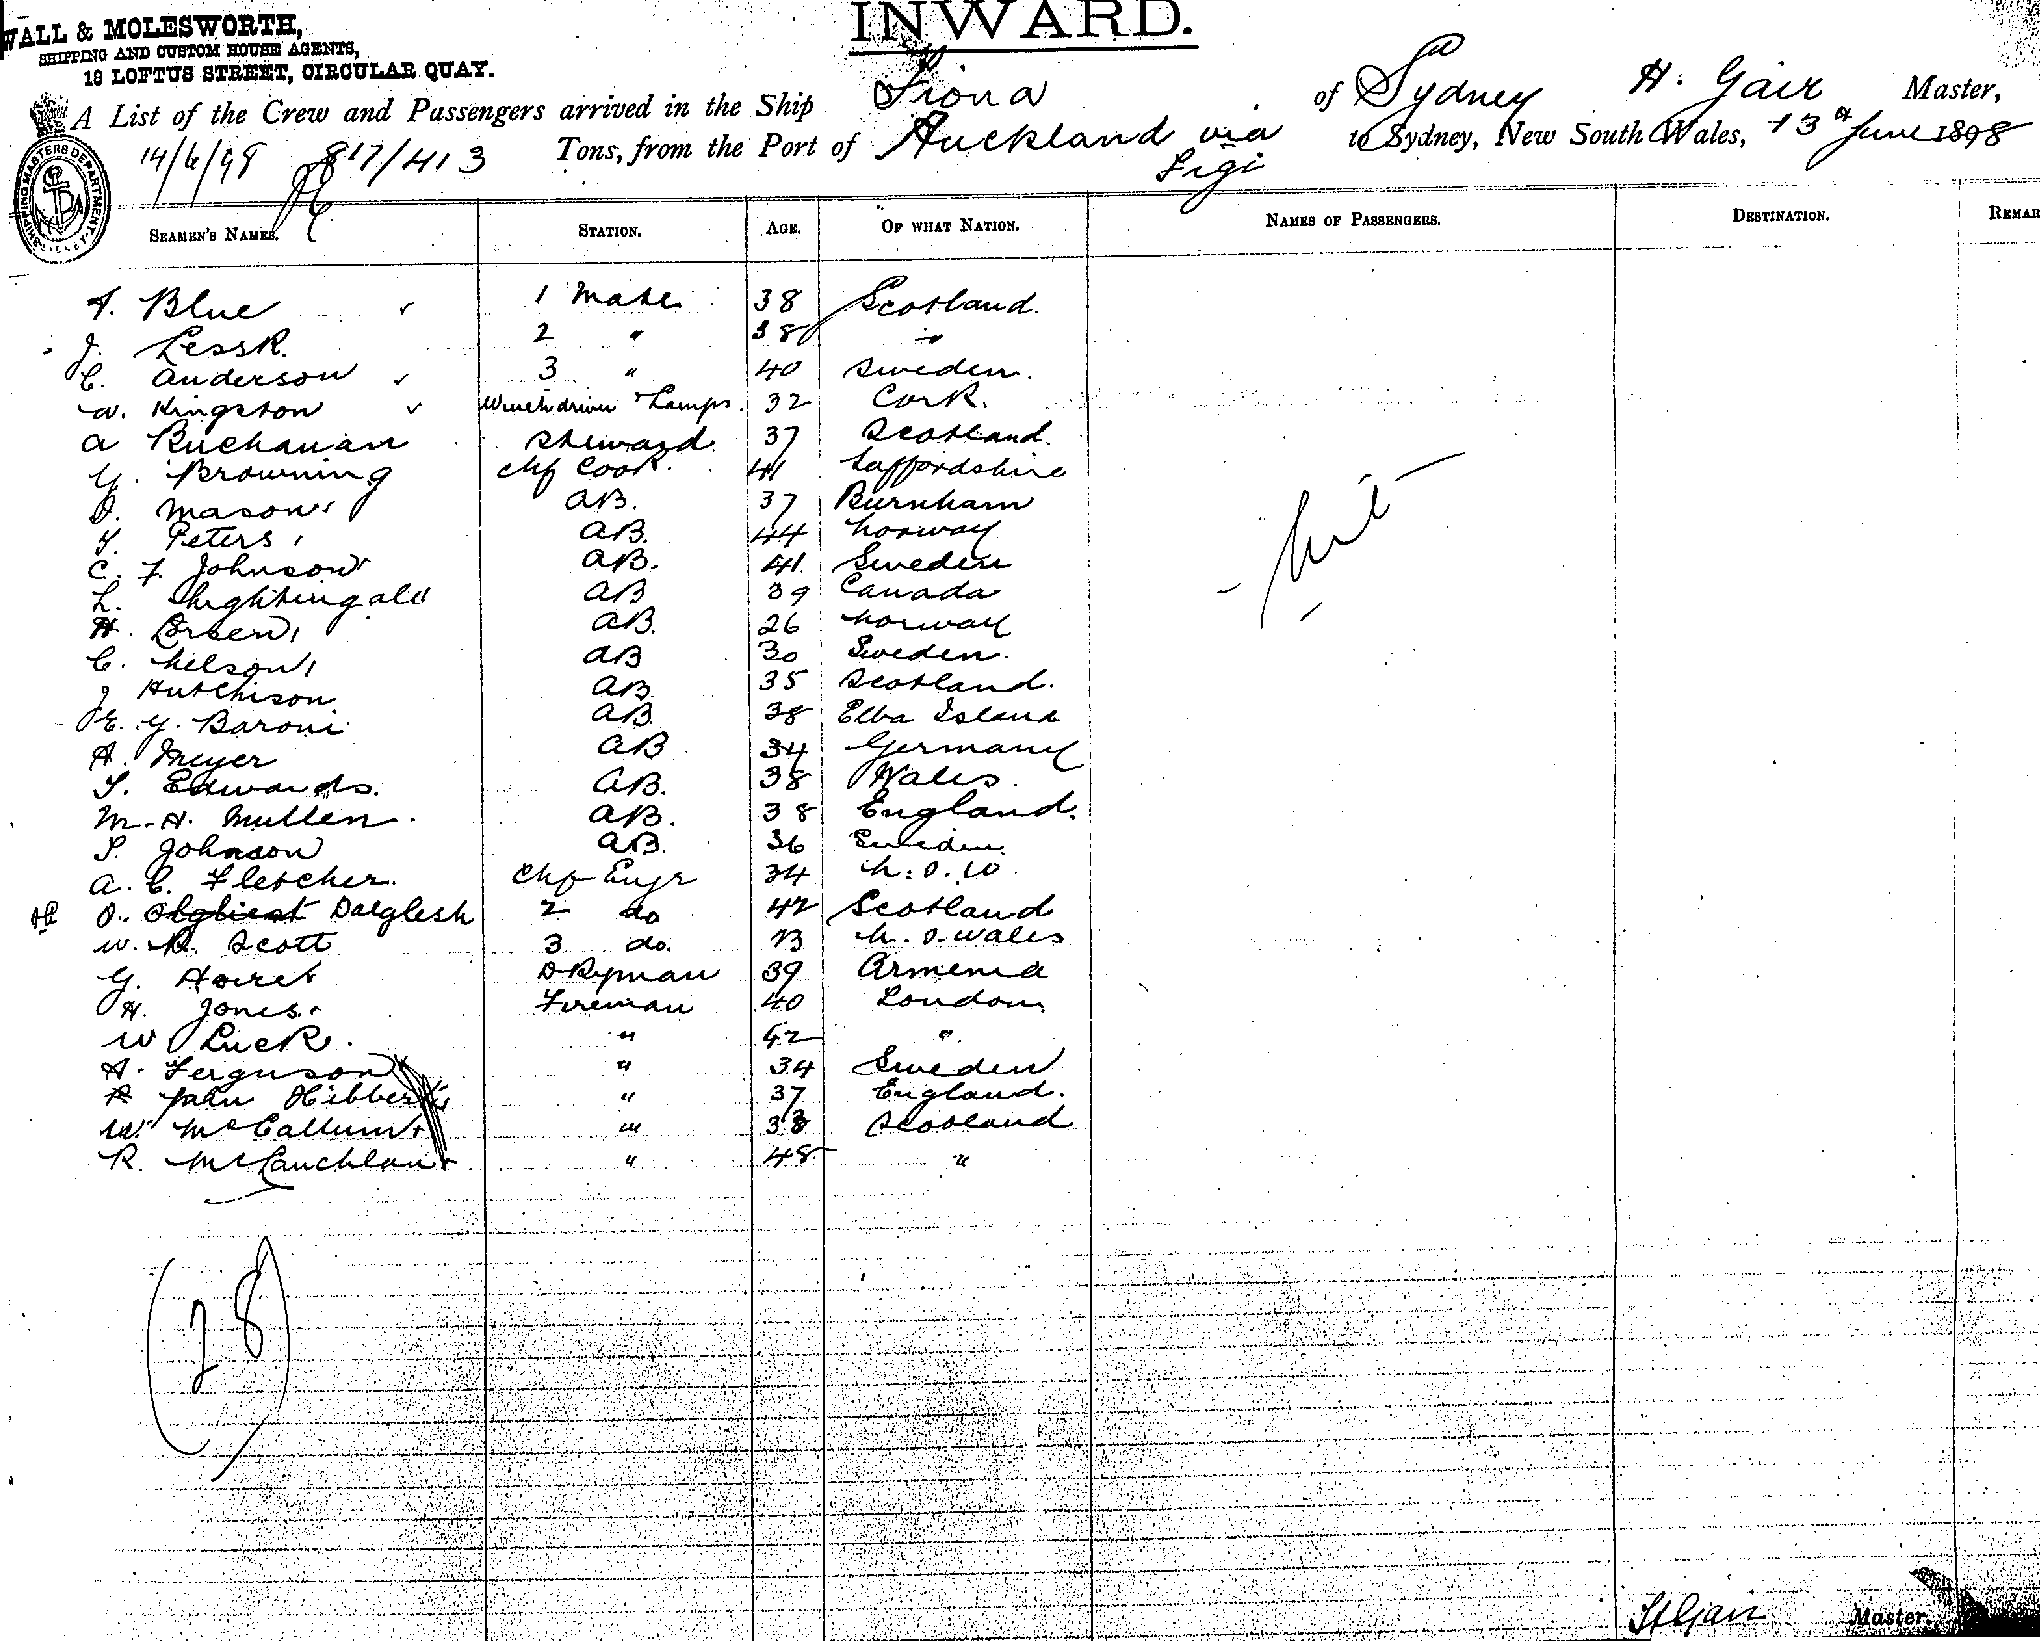 WALL & MOLESWORTH,
SHIPPING AND CUSTOM HOUSE AGENTS,
18 LOFTUS STREET, CIRCULAR QUAY.
INWARD.
A List of the Crew and Passengers arrived in the Ship Fiona of Sydney H. Gair Master,
14/6/98 817/413 Tons, from the Port of Auckland via Figi to Sydney, New South Wales, 13th June 1898
SHIPPING MASTERS DEPARTMENT
SEAMEN'S NAMES. STATION. AGE. OF WHAT NATION. NAMES OF PASSENGERS. DESTINATION. REMAR
A. Blue 1 Mate 38 Scotland
J. Lessk. 2 " 38 "
C. Anderson 3 " 40 Sweden.
W. Kingston Winchdriver & Lamps. 32 Cork.
A Buchanan Steward 37 Scotland.
G. Browning Chf Cook. 41 Saffordshire
D. Mason AB. 37 Burnham
T. Peters AB. 44 Norway
C. F Johnson AB. 41 Sweden
L. Nightingale AB 39 Canada
H. Lorsen AB. 26 Norway
C. Nelson AB 30 Sweden.
J Hutchison AB 35 Scotland.
E. G. Baroni AB 38 Elba Island
A. Meyer AB 34 Germany
T. Edwards. AB. 38 Wales
M. H. Mullen. AB. 38 England.
P. Johnson AB. 36 Sweden.
A. C. Fletcher. Chf Engr 34 N. S. W
D. Dalglesh 2 do 42 Scotland
W. R. Scott 3 do. 23 N. S. Wales
G. DKyman 39 Armenia
H. Jones. Fireman 40 London
W Luck. " 42 "
A. Ferguson " 34 Sweden
John Hibbert " 37 England.
W. McCallum " 38 Scotland
R. McLauchlan " 48 "
Nil
(28)
H Gair Master.